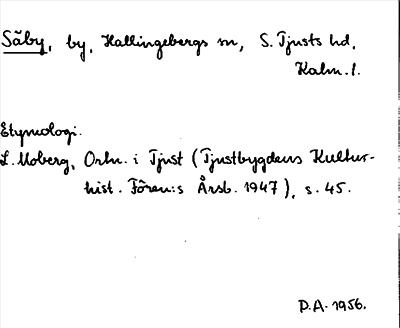 Säby, by, Hallingebergs sn, S. Tjusts hd,
Kalm. l.
Etymologi.
L. Moberg, Ortn. i Tjust (Tjustbygdens Kultur-
hist. Fören:s Årsb. 1947), s. 45.
D.A. 1956.